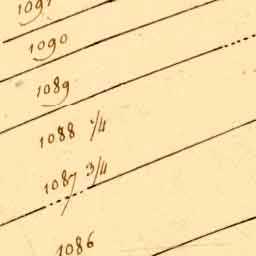 1091
1090
1089
1088 1/4
1087 3/4
1086